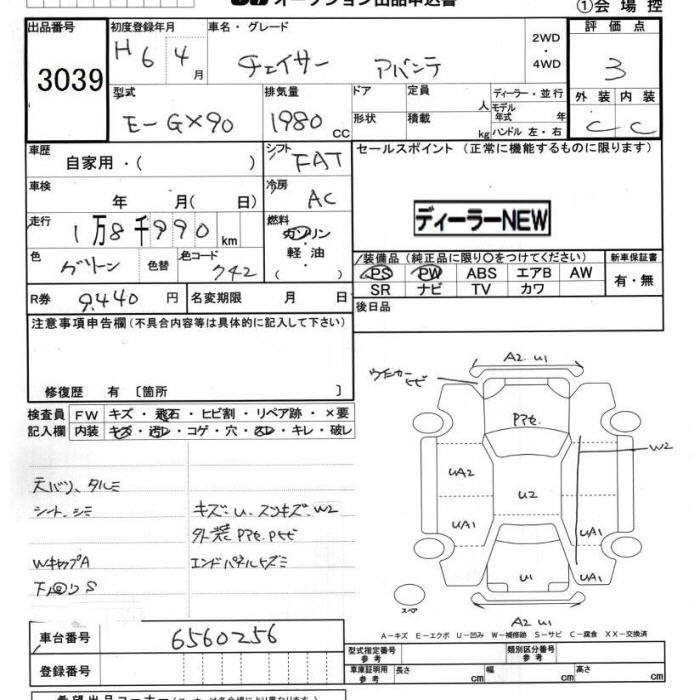 オークション出品申込書
①会場控
出品番号 初度登録年月 車名・グレード 2WD・4WD 評価点
3039 H6 4月 チェイサー アバンテ 3
型式 排気量 ドア 定員 人 ディーラー・並行 外装 内装
E-GX90 1980cc 形状 積載 kg モデル年式 年 ハンドル 左・右 C C
車歴 自家用・( ) シフト FAT セールスポイント (正常に機能するものに限ります)
車検 年 月( 日) 冷房 AC
ディーラーNEW
走行 1万8千990km 燃料 ガソリン・軽油・( )
色 グリーン 色替 色コード 742
装備品 (純正品に限り○をつけてください) 新車保証書
PS PW ABS エアB AW 有・無
SR ナビ TV カワ
R券 9,440円 名変期限 月 日 後日品
注意事項申告欄(不具合内容等は具体的に記入して下さい)
修復歴 有 〔箇所 〕
検査員 FW キズ・飛石・ヒビ割・リペア跡・×要
記入欄 内装 キズ・汚レ・コゲ・穴・スレ・キレ・破レ
天バリ、タルミ
シート、シミ キズ・U、スリキズ、W2
外装
WキャップA エンドパネルヒズミ
下回りS
A2 U1
ウインカーヒビ
W2
UA2 U2
UA1 UA1
U1 UA1
スペア
A2 U1
A-キズ E-エクボ U-凹み W-補修跡 S-サビ C-腐食 XX-交換済
車台番号 6560256 型式指定番号 参考 類別区分番号 参考
登録番号 車庫証明用 参考 長さ cm 幅 cm 高さ cm
希望出品コーナー